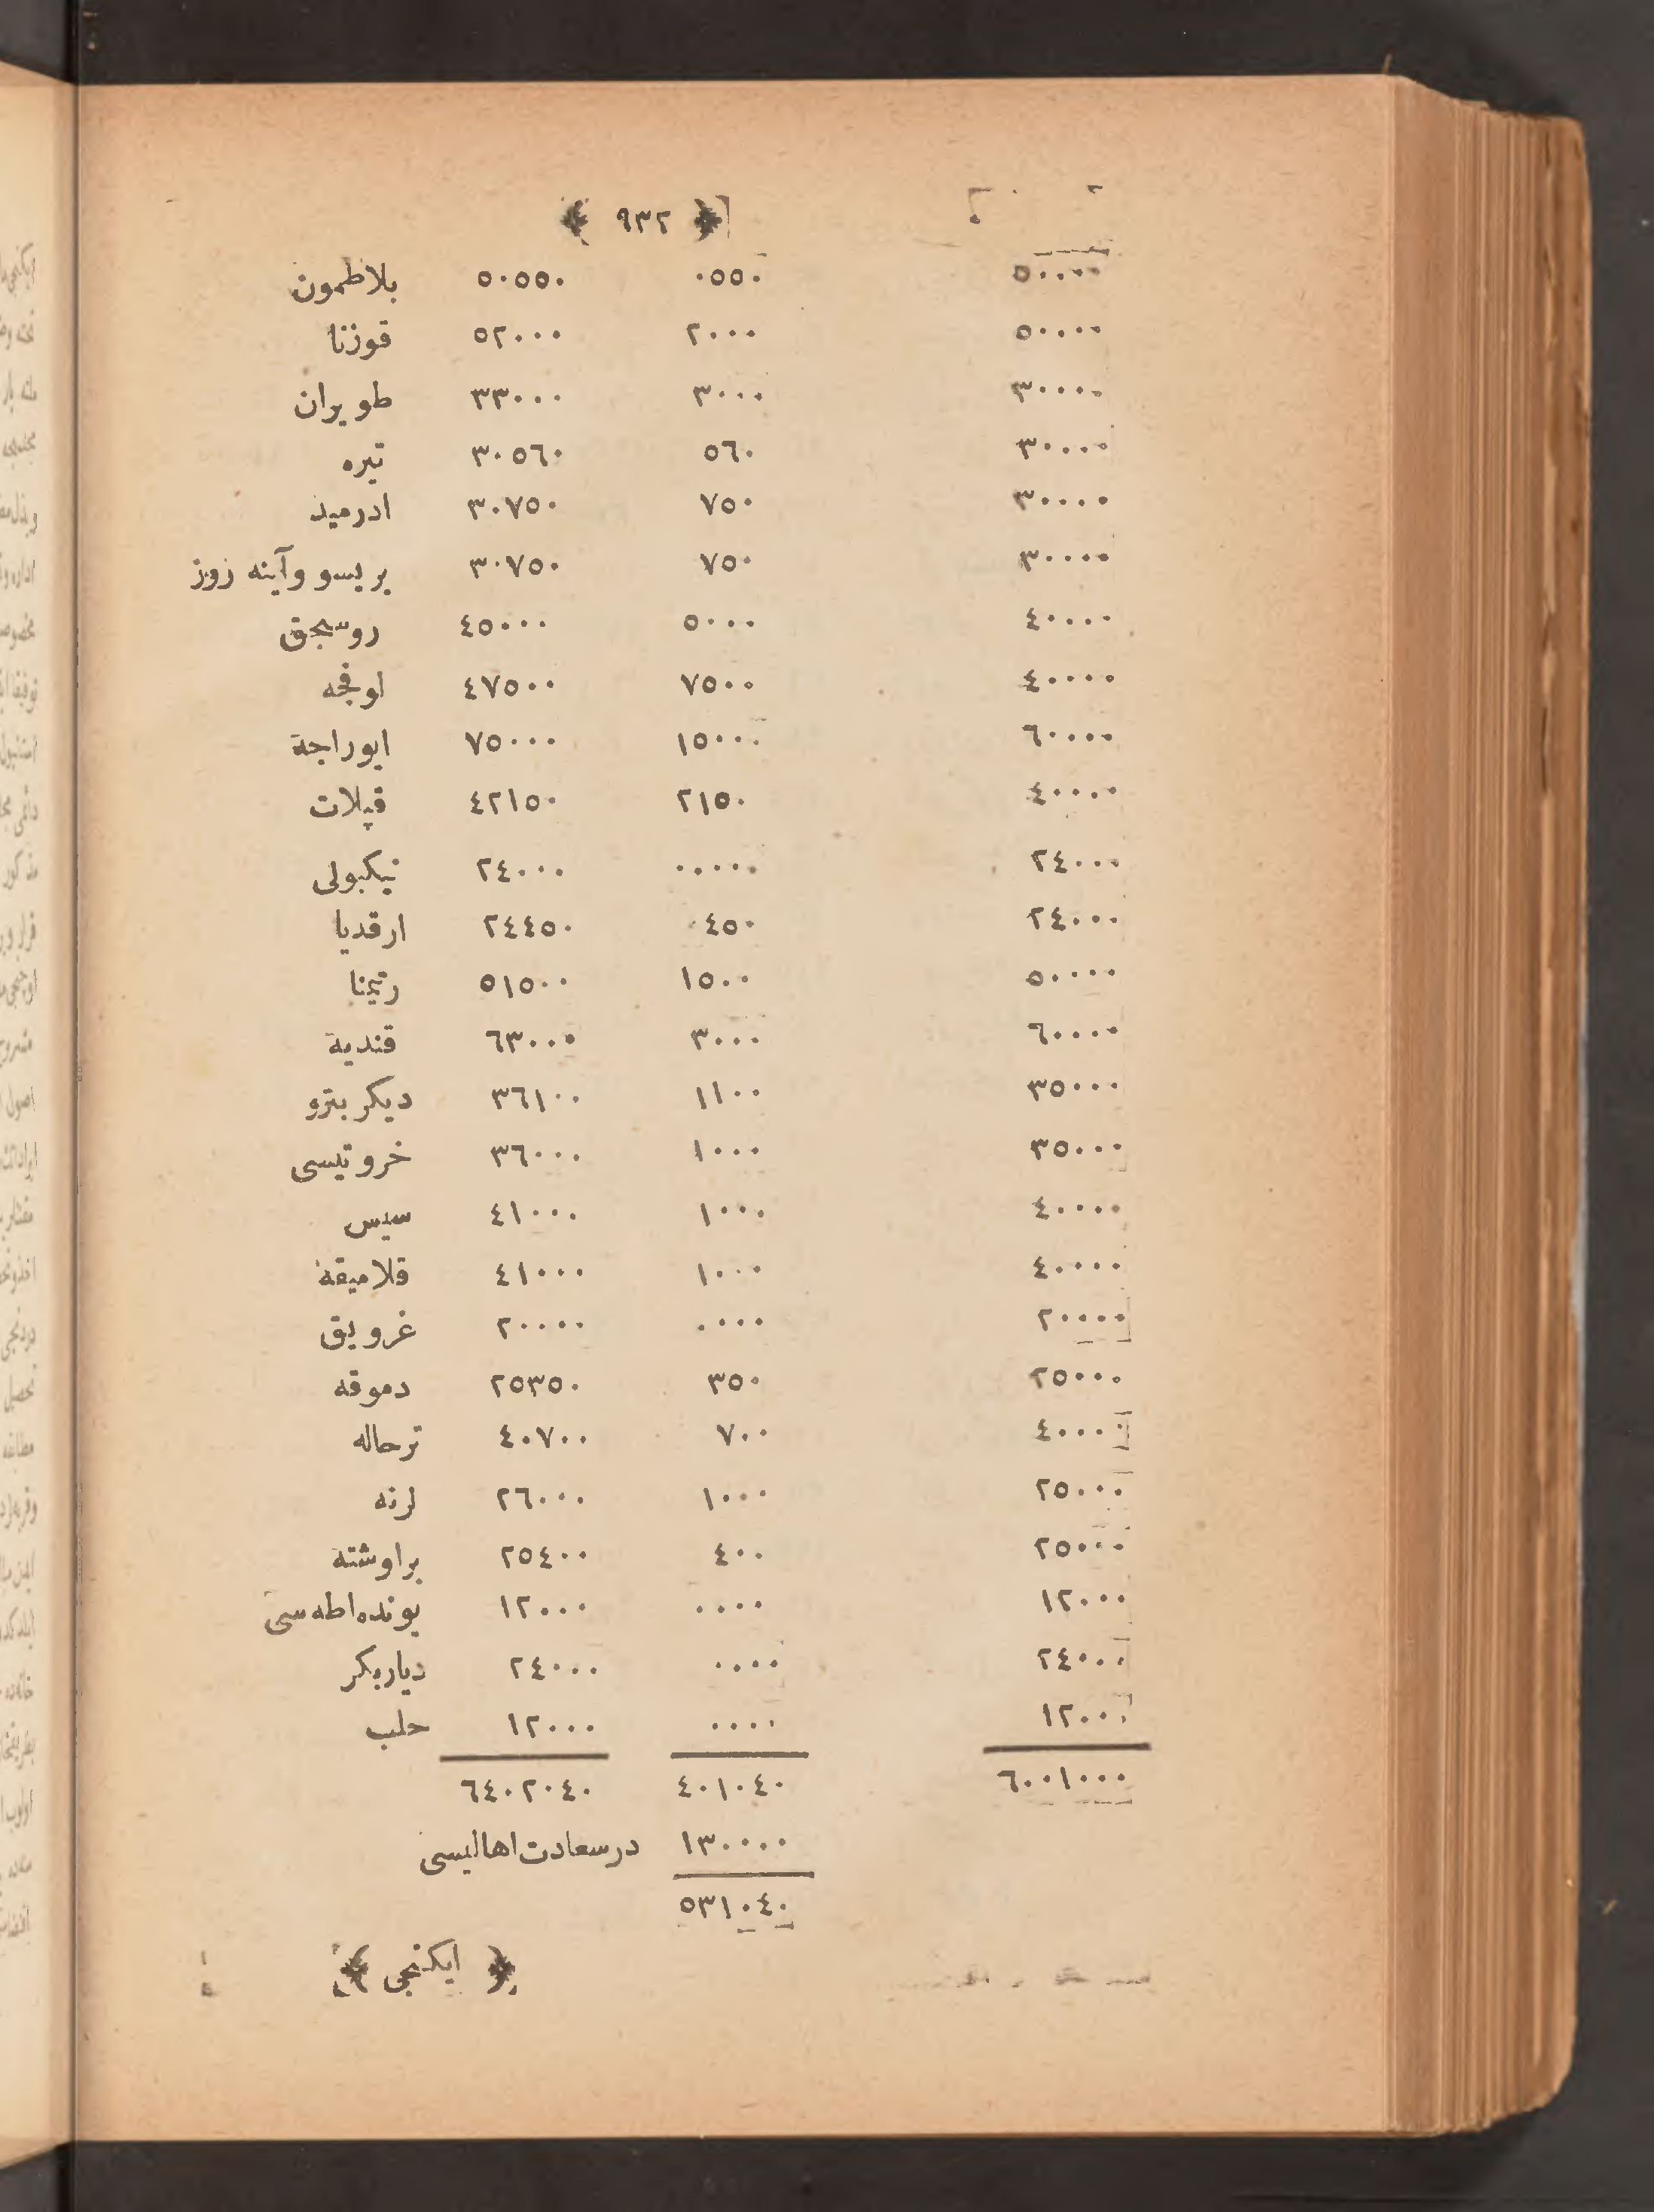 ﴿ ٩٣٢ ﴾
٥٠٠٠٠ ٠٥٥٠ ٥٠٥٥٠ بلاطمون
٥٠٠٠٠ ٢٠٠٠ ٥٢٠٠٠ قوزنا
٣٠٠٠٠ ٣٠٠٠ ٣٣٠٠٠ طویران
٣٠٠٠٠ ٥٦٠ ٣٠٥٦٠ تیره
٣٠٠٠٠ ٧٥٠ ٣٠٧٥٠ ادرمید
٣٠٠٠٠ ٧٥٠ ٣٠٧٥٠ بریسو وآینه روز
٤٠٠٠٠ ٥٠٠٠ ٤٥٠٠٠ روسجق
٤٠٠٠٠ ٧٥٠٠ ٤٧٥٠٠ لوفجه
٦٠٠٠٠ ١٥٠٠٠ ٧٥٠٠٠ ایوراجة
٤٠٠٠٠ ٢١٥٠ ٤٢١٥٠ قپلات
٢٤٠٠٠ ٠٠٠٠٠ ٢٤٠٠٠ نیکبولی
٢٤٠٠٠ ٤٥٠ ٢٤٤٥٠ ارقدیا
٥٠٠٠٠ ١٥٠٠ ٥١٥٠٠ رتیمنا
٦٠٠٠٠ ٣٠٠٠ ٦٣٠٠٠ قندیة
٣٥٠٠٠ ١١٠٠ ٣٦١٠٠ دیکر بترو
٣٥٠٠٠ ١٠٠٠ ٣٦٠٠٠ خروتیسی
٤٠٠٠٠ ١٠٠٠ ٤١٠٠٠ سیس
٤٠٠٠٠ ١٠٠٠ ٤١٠٠٠ قلامیقة
٢٠٠٠٠ ٠٠٠٠ ٢٠٠٠٠ غرویق
٢٥٠٠٠ ٣٥٠ ٢٥٣٥٠ دموقه
٤٠٠٠٠ ٧٠٠ ٤٠٧٠٠ ترحاله
٢٥٠٠٠ ١٠٠٠ ٢٦٠٠٠ لرنه
٢٥٠٠٠ ٤٠٠ ٢٥٤٠٠ براوشته
١٢٠٠٠ ٠٠٠٠ ١٢٠٠٠ یونده اطه سی
٢٤٠٠٠ ٠٠٠٠ ٢٤٠٠٠ دیاربکر
١٢٠٠٠ ٠٠٠٠ ١٢٠٠٠ حلب
٦٠٠١٠٠٠ ٤٠١٠٤٠ ٦٤٠٢٠٤٠
١٣٠٠٠٠ درسعادت اهالیسی
٥٣١٠٤٠
﴿ ایکنجی ﴾